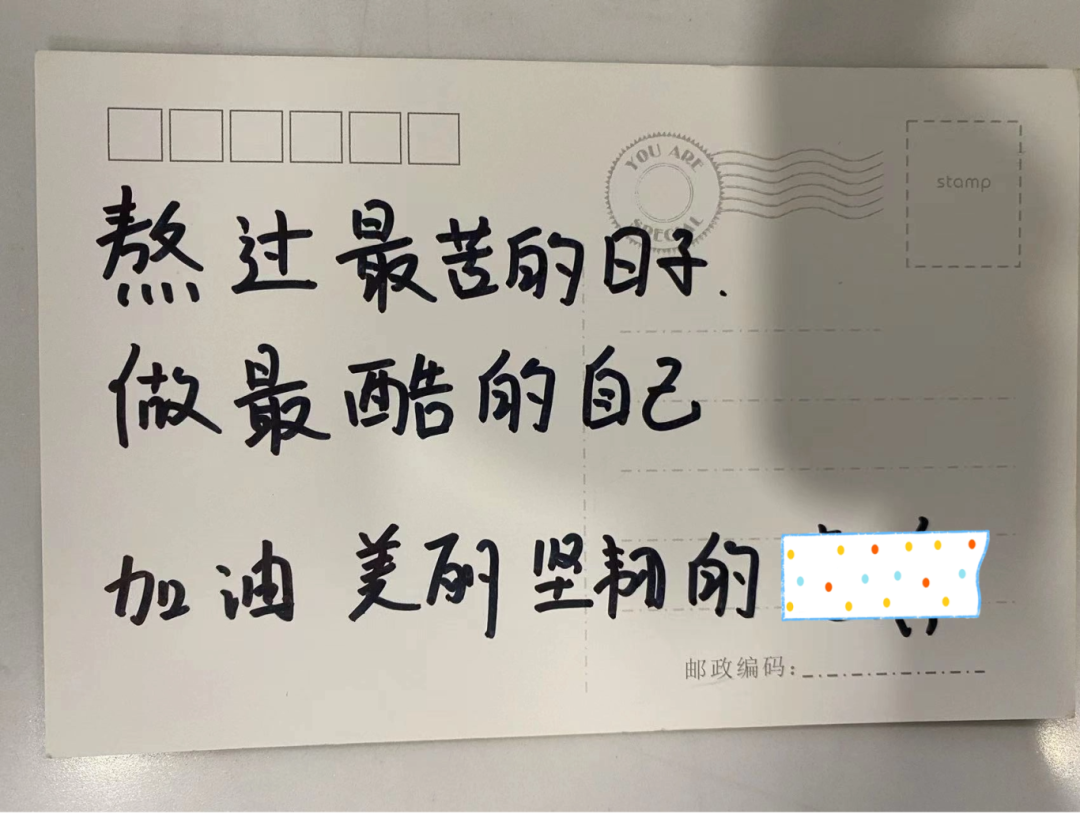 YOU ARE
SPECIAL
stamp
熬过最苦的日子.
做最酷的自己
加油 美丽坚韧的
邮政编码: